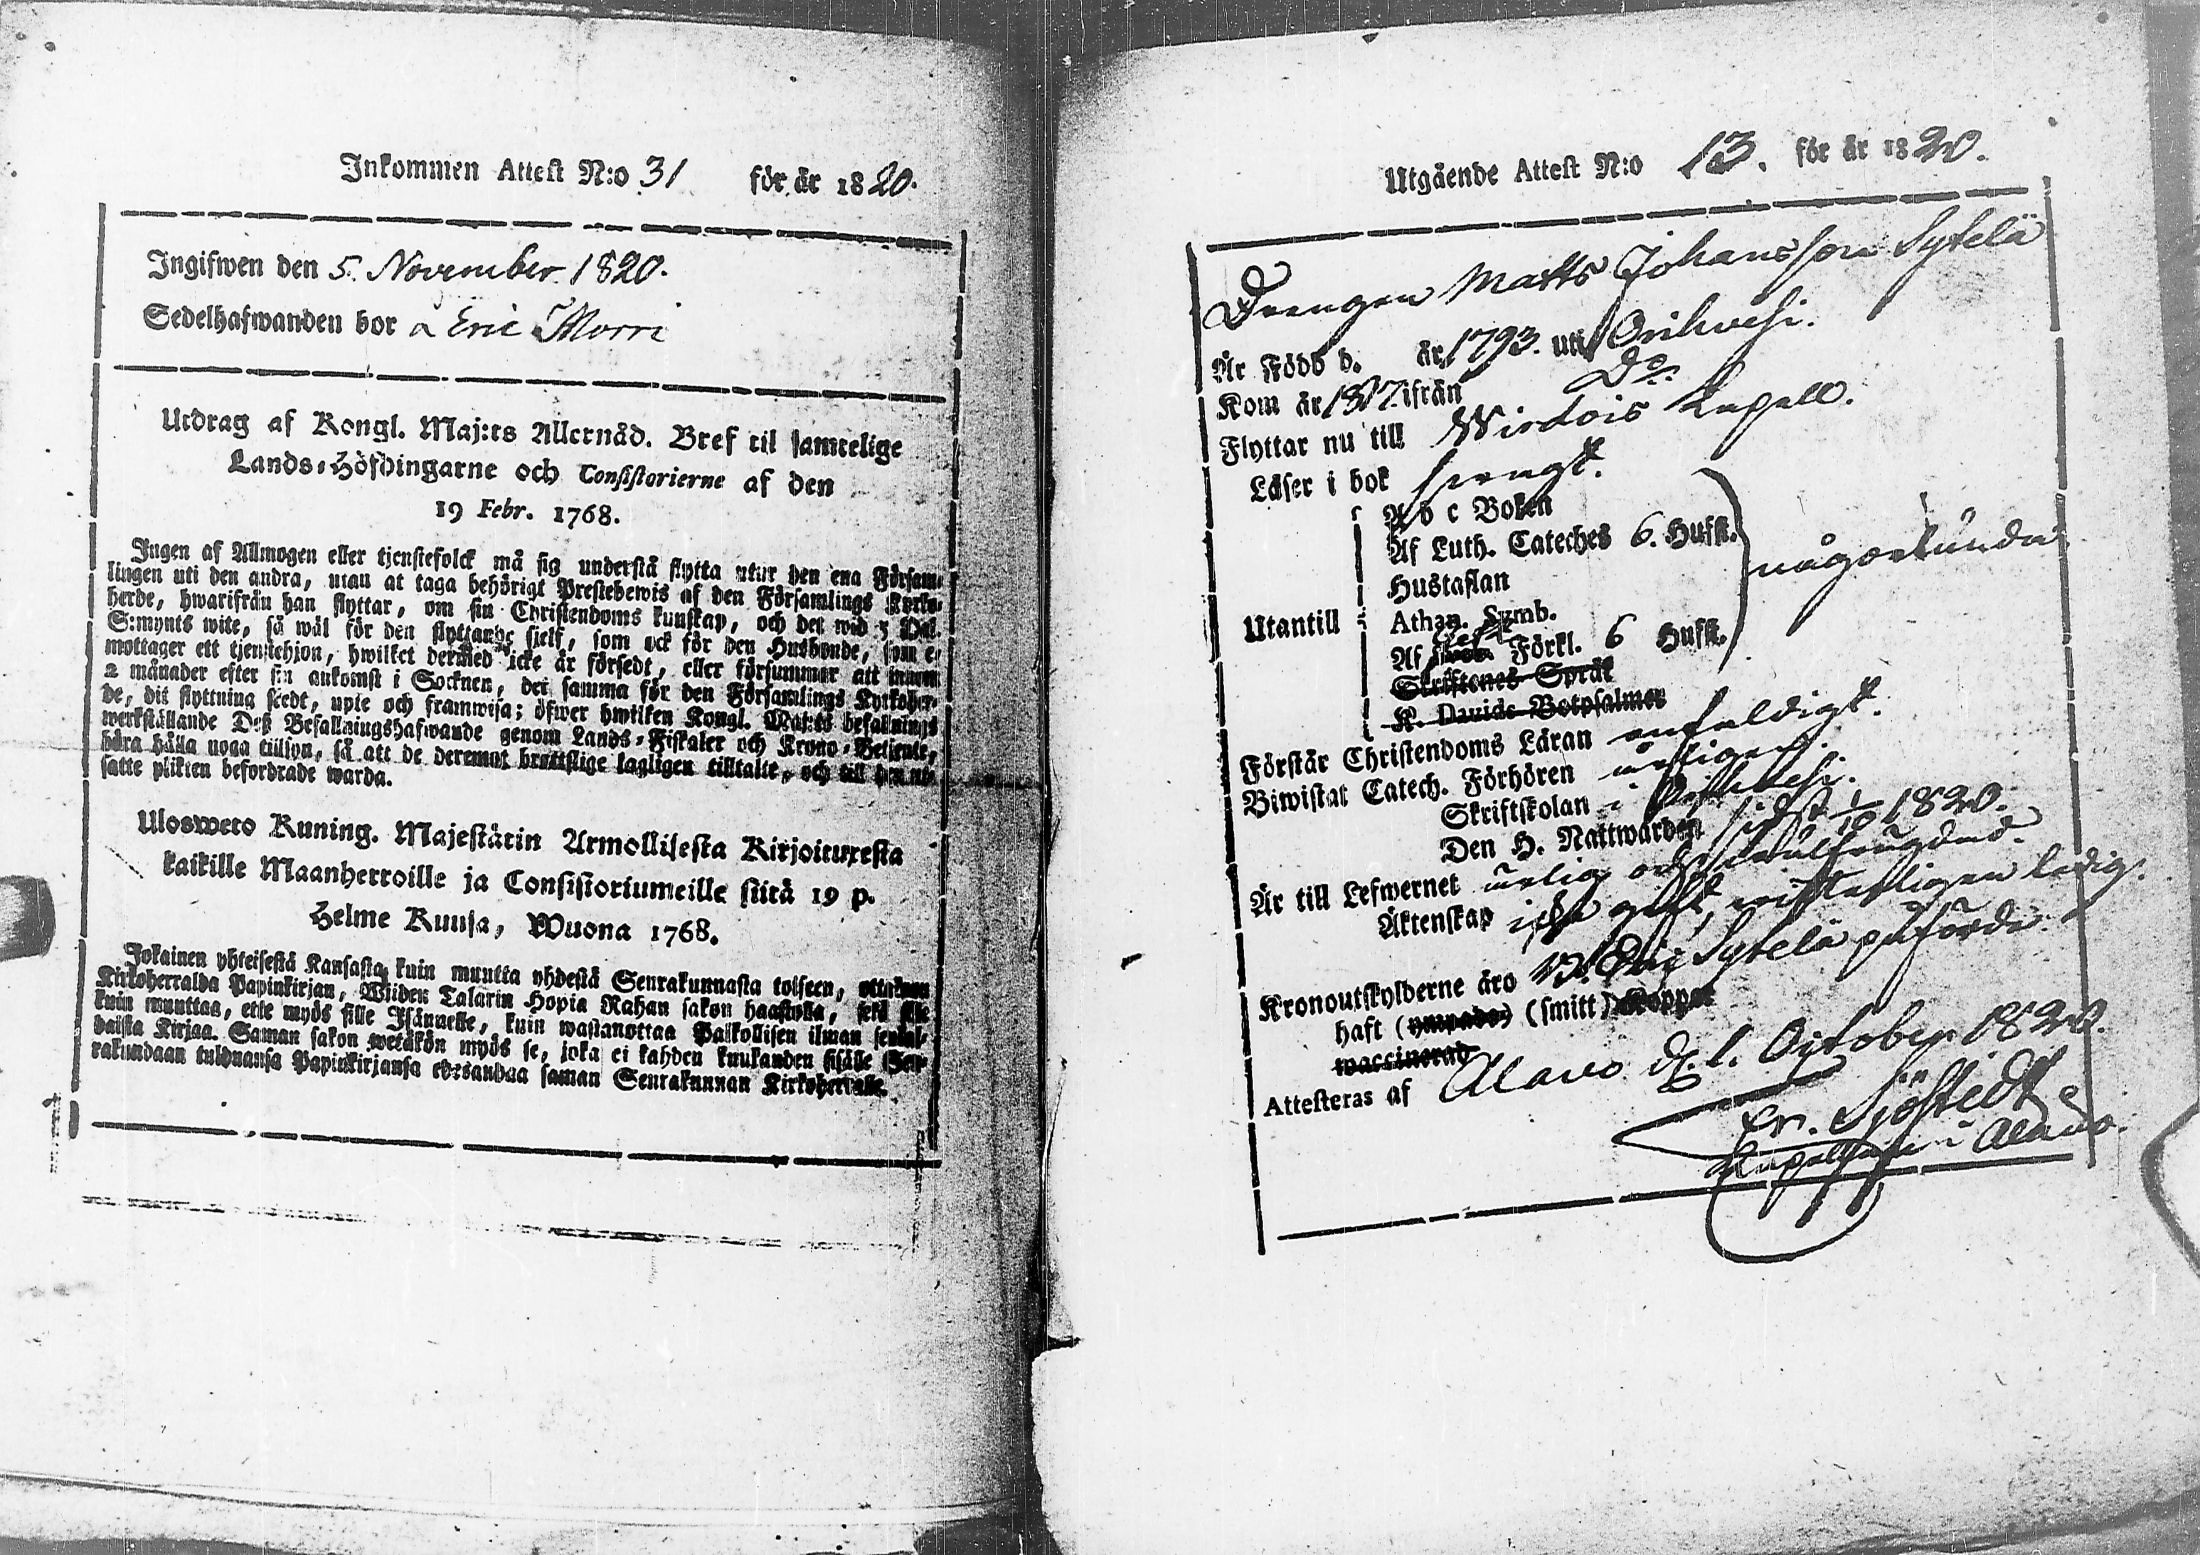 Inkommen Attest N:o 31 för år 1820.
Ingifwen den 5. November 1820.
Sedelhafwanden bor å Eric Morri
Utdrag af Kongl. Maj:ts Allernåd. Bref til samtelige
Lands-Höfdingarne och Consistorierne af den
19 Febr. 1768.
Ingen af Allmogen eller tjenstefolck må sig understå flytta utur den ena Försam-
lingen uti den andra, utan at taga behörigt Prestebewis af den Församlings Kyrko-
herde, hwarifrån han flyttar, om sin Christendoms kunskap, och det wid 5 Dal.
S:mynts wite, så wäl för den flyttande sjelf, som ock för den Husbonde, som e-
mottager ett tjenstehjon, hwilket dermed icke är försedt, eller försummar att innom
2 månader efter sin ankomst i Socknen, det samma för den Församlings Kyrkoher-
de, dit flyttning skedt, upte och framwisa; öfwer hwilken Kongl. Maj:ts befallnings
werkställande Deß Befallningshafwande genom Lands-Fiskaler och Krono-Betjente,
böra hålla noga tillsyn, så att de deremot brottslige lagligen tilltalte, och till den ut-
satte plikten befordrade warda.
Ulosweto Kuning. Majestätin Armollisesta Kirjoituxesta
kaikille Maanherroille ja Consistoriumeille siitä 19 p.
Helme Kuusa, Wuona 1768.
Jokainen yhteisestä Kansasta, kuin muutta yhdestä Seurakunnasta toiseen, ottakaan
Kirkoherralda Papinkirjan, Wiiden Talarin Hopia Rahan sakon haastolla, sekä sille
kuin muuttaa, ette myös sille Isännelle, kuin wastanottaa Palkollisen ilman senkal-
daista Kirjaa. Saman sakon wetäkön myös se, joka ei kahden kuukanden sisälle Seu-
rakundaan tulduansa Papinkirjansa edesandaa saman Seurakunnan Kirkoherralle.
Utgående Attest N:o 13. för år 1820.
Drengen Matts Johansson Sytelä
Är Född d. år 1793. uti Orihvesi.
Kom år 1817 ifrån Do.
Flyttar nu till Wirdois Kapell.
Läser i bok svagt.
A b c Boken
Af Luth. Cateches 6. Hufst.
Hustaflan någorlunda
Utantill Athan. Symb.
Af Förkl. 6 Hufst.
Skriftenes Språk
K. Davids Botpsalmer
Förstår Christendoms Läran enfaldigt.
Biwistat Catech. Förhören årligen
Skriftskolan i Orihvesi.
Den H. Nattwarden sidst 1/10 1820.
Är till Lefwernet ärlig och
Äktenskap icke gift, witterligen ledig.
Kronoutskylderne äro Sytelä påförde.
haft (ympade) (smitt) Koppor
waccinerad
Attesteras af Alavo d. 1. October 1820.
Er. Sjöstedt
Kapellan i Alavo.